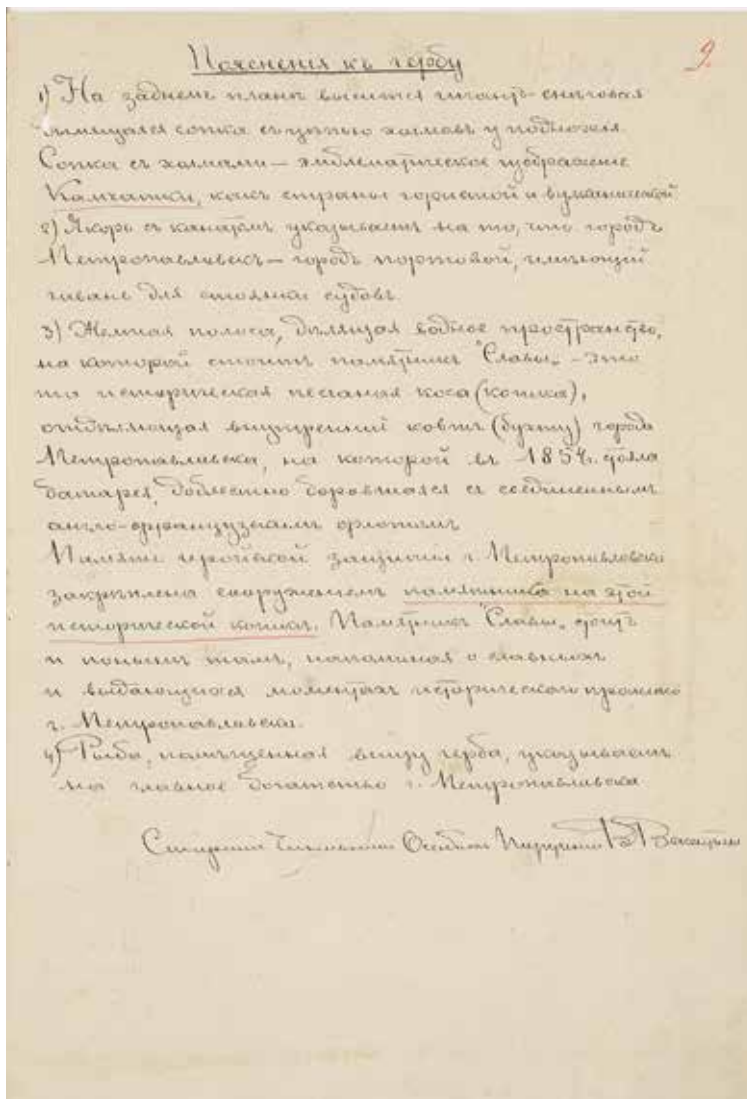 Пояснения къ гербу
9.
1) На заднемъ планѣ высится гигантъ-снѣговая
дымящаяся сопка съ цѣпью холмовъ у подножія.
Сопка съ холмами – эмблематическое изображение
Камчатки, какъ страны гористой и вулканической
2) Якорь съ канатомъ указываетъ на то, что городъ
Петропавловскъ – городъ портовой, имѣющій
гавань для стоянки судовъ.
3) Желтая полоса, дѣлящая водное пространство,
на которой стоитъ памятникъ "Славы" – это
та историческая песчаная коса (кошка),
отдѣляющая внутренній ковшъ (бухту) города
Петропавловска, на которой въ 1854 г. стояла
батарея, доблестно боровшаяся съ соединеннымъ
англо-французскимъ флотомъ
Память геройской защиты г. Петропавловска
закрѣплена сооруженіемъ памятника на этой
исторической кошкѣ. Памятникъ "Славы" стоитъ
и понынѣ тамъ, напоминая о славныхъ
и выдающихся моментахъ историческаго прошлаго
г. Петропавловска.
4) Рыба, помѣщенная внизу герба, указываетъ
на главное богатство г. Петропавловска
Старшій Чиновникъ Особыхъ Порученій В